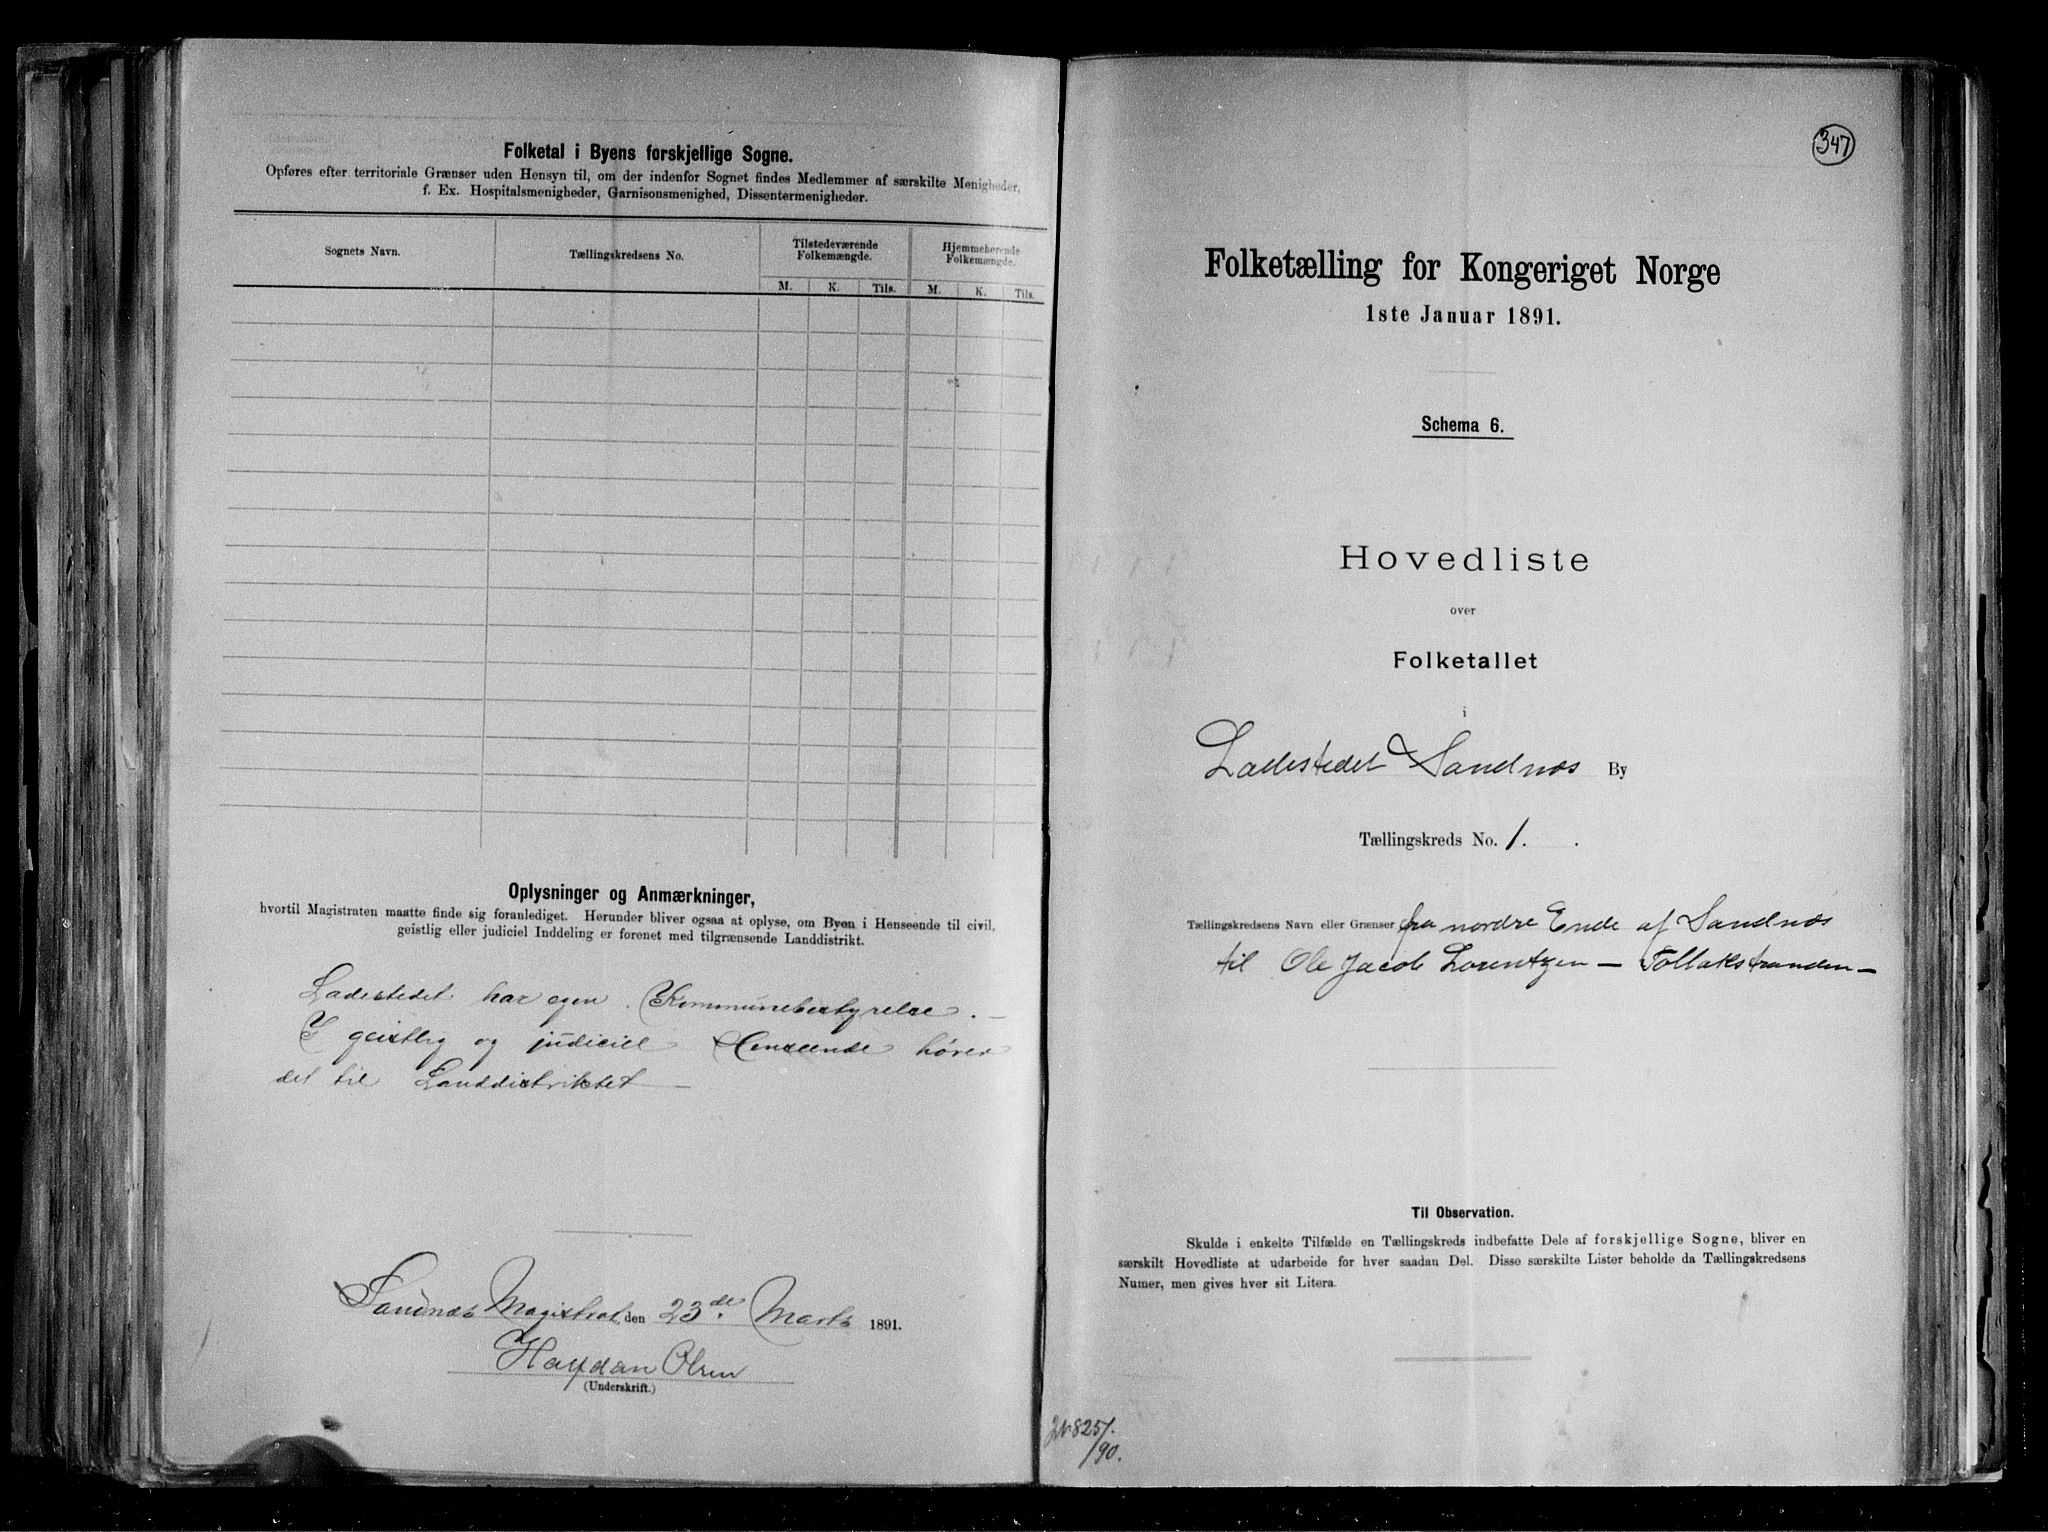 Folketal i Byens forskjellige Sogne.
Opføres efter territoriale Grænser uden Hensyn til, om der indenfor Sognet findes Medlemmer af særskilte Menigheder,
f. Ex. Hospitalsmenigheder, Garnisonsmenighed, Dissentermenigheder.
Sognets Navn.
Tællingskredsens No.
Tilstedeværende
Folkemængde.
Hjemmehørende
Folkemængde.
M. K. Tils. M. K. Tils.
Oplysninger og Anmærkninger,
hvortil Magistraten maatte finde sig foranlediget. Herunder bliver ogsaa at oplyse, om Byen i Henseende til civil,
geistlig eller judiciel Inddeling er forenet med tilgrænsende Landdistrikt.
Ladestedet har egen Kommunebestyrelse. —
I geistlig og judiciel Henseende hører
det til Landdistriktet —
Sandnæs Magistrat, den 23de Marts 1891.
Halfdan Olsen
(Underskrift.)
347
Folketælling for Kongeriget Norge
1ste Januar 1891.
Schema 6.
Hovedliste
over
Folketallet
i
Ladestedet Sandnæs By
Tællingskreds No. 1.
Tællingskredsens Navn eller Grænser fra nordre Ende af Sandnæs
til Ole Jacob Lorentzen — Tollakstranden —
Til Observation.
Skulde i enkelte Tilfælde en Tællingskreds indbefatte Dele af forskjellige Sogne, bliver en
særskilt Hovedliste at udarbeide for hver saadan Del. Disse særskilte Lister beholde da Tællingskredsens
Numer, men gives hver sit Litera.
825/
90.